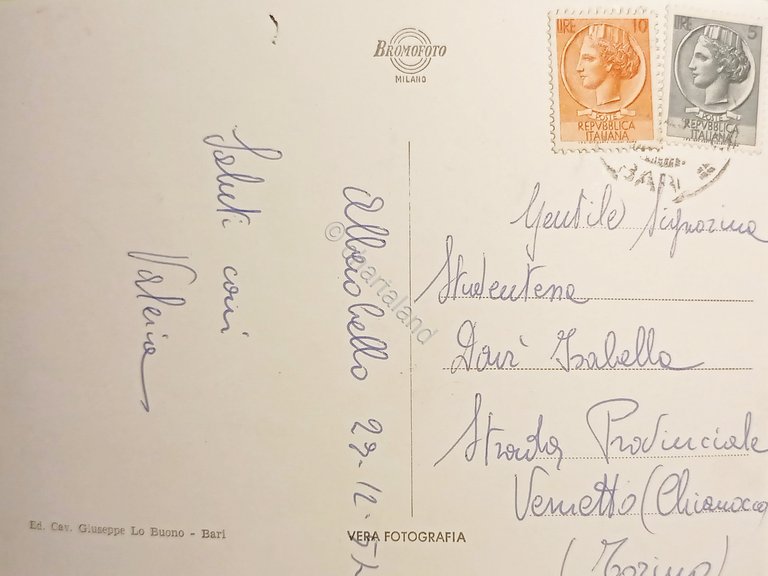 BROMOFOTO
MILANO
LIRE 10
POSTE
REPVBBLICA
ITALIANA
LIRE 5
POSTE
REPVBBLICA
ITALIANA
Saluti cari
Valeria
Alberobello 29-12-57
© Cartaland
Gentile Signorina
Studentessa
Davì Isabella
Strada Provinciale
Vernetto (Chianocco)
(Torino)
Ed. Cav. Giuseppe Lo Buono - Bari
VERA FOTOGRAFIA